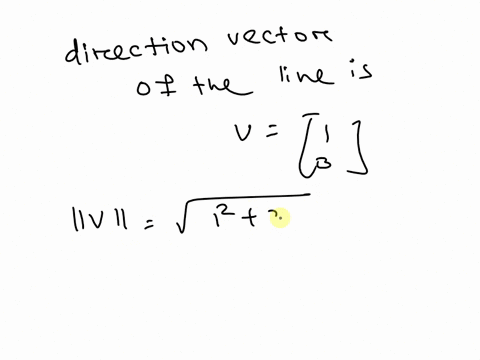 direction vector
of the line is
v = [1
3]
||v|| = √1² +